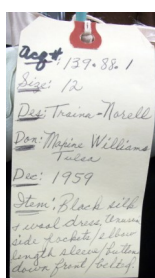 Acq#: 139.88.1
Size: 12
Des: Traina-Norell
Don: Maxine Williams
Tulsa
Dec: 1959
Item: Black silk
& wool dress,
side pockets/elbow
length sleeve/button
down front/belting.